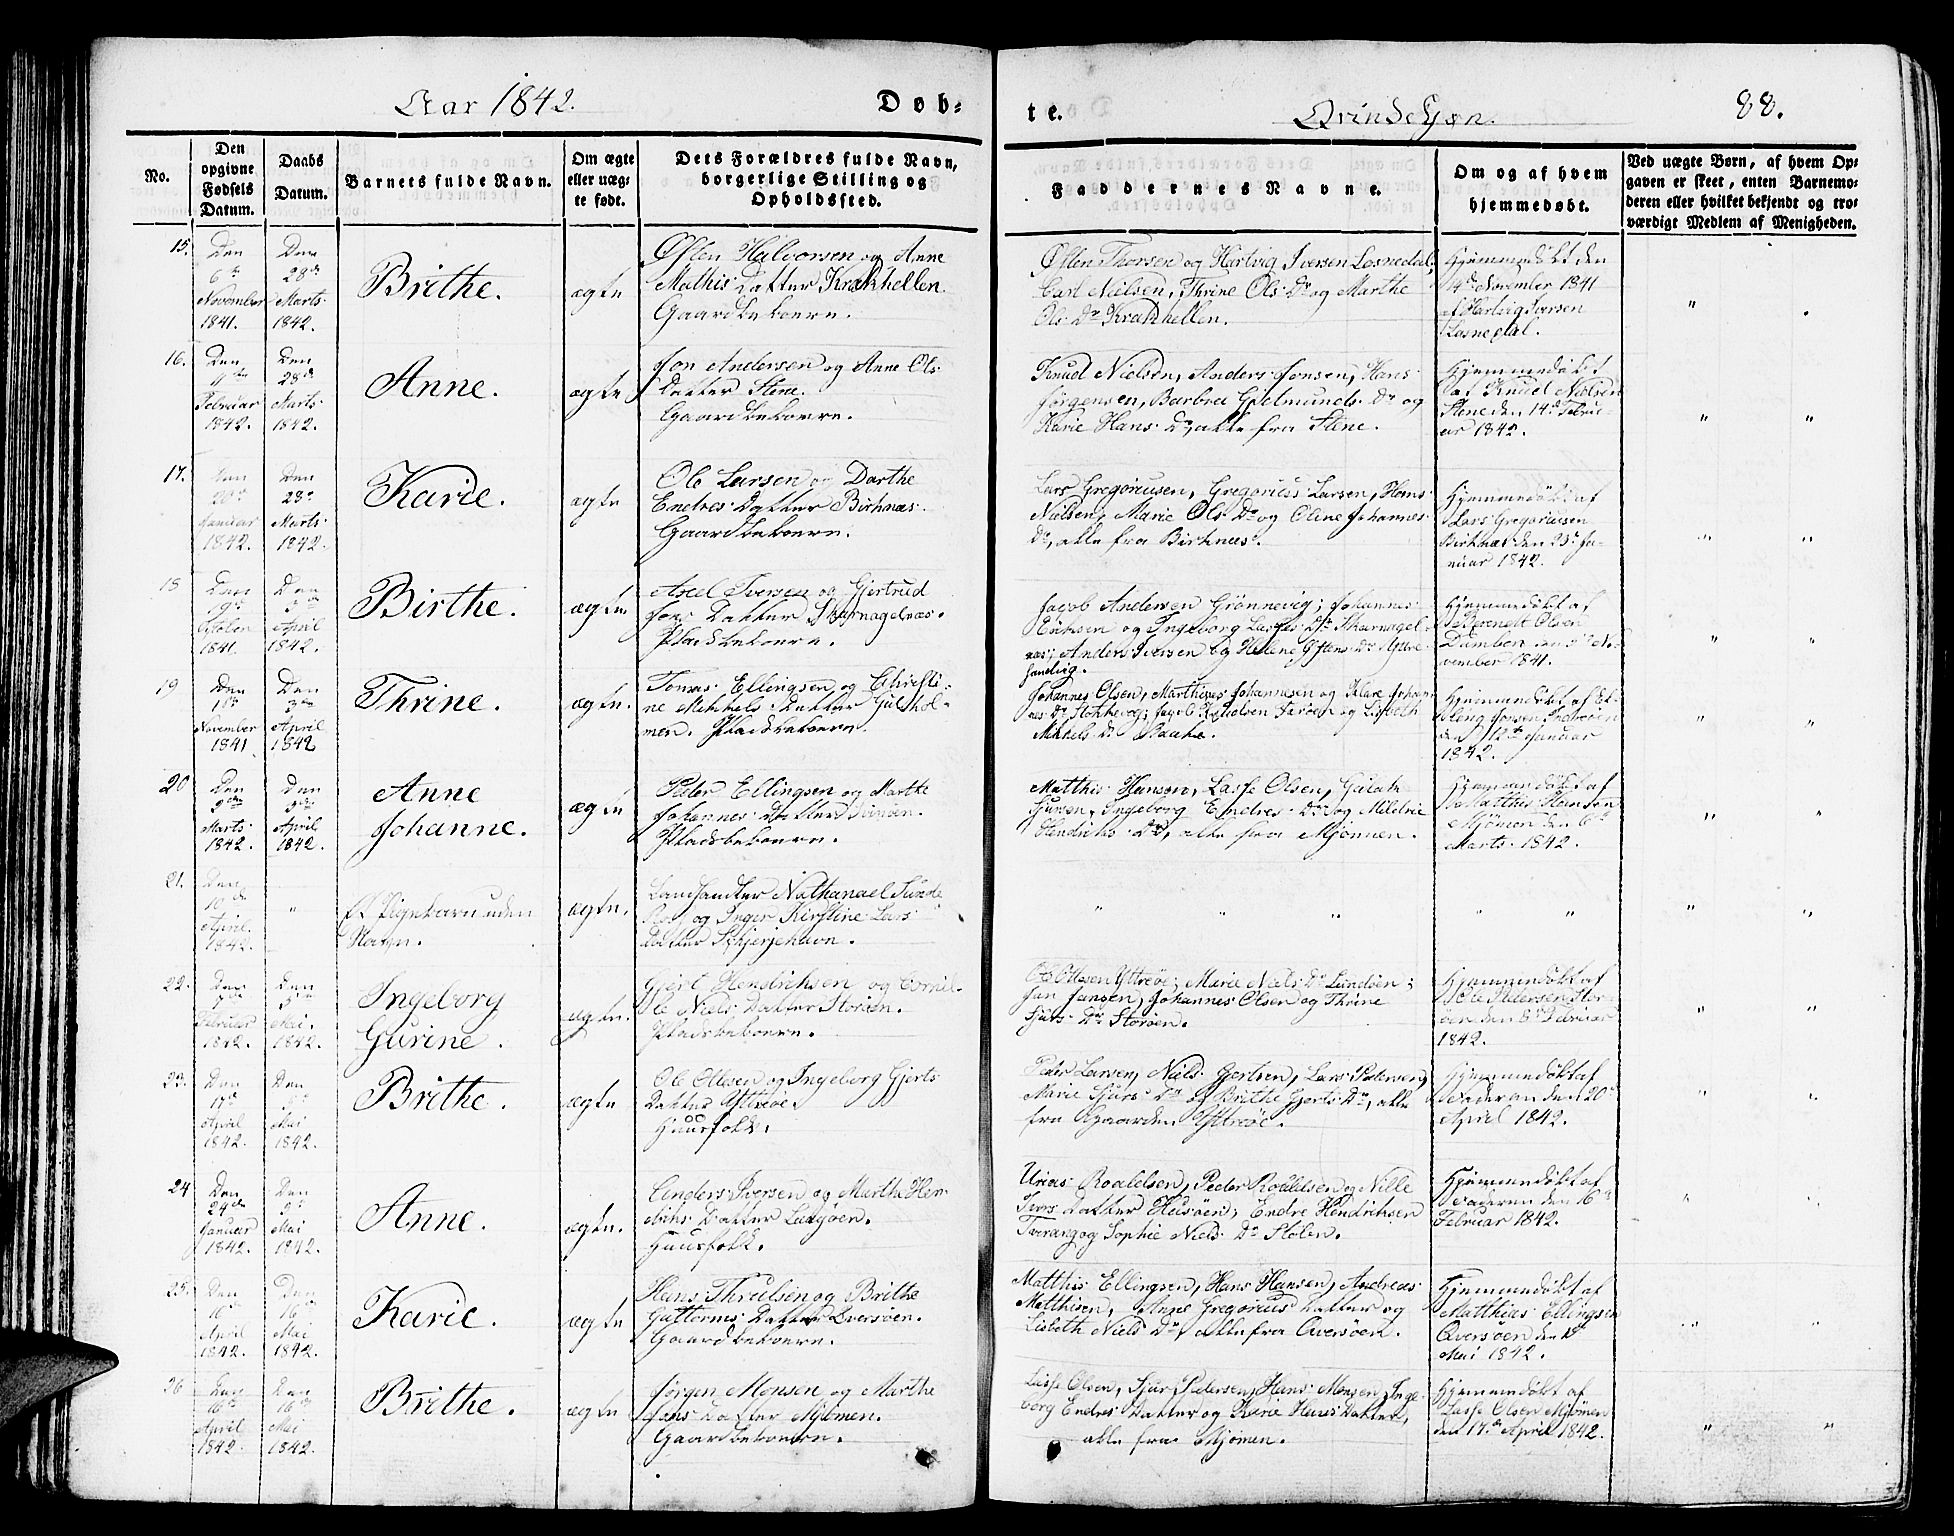 Aar 1842.
Døb-
te.
Qvindekjøn.
88.
No.
Den
opgivne
Fødsels
Datum.
Daabs
Datum.
Barnets fulde Navn.
Om ægte
eller uæg-
te født.
Dets Forældres fulde Navn,
borgerlige Stilling og
Opholdssted.
Faddernes Navne.
Om og af hvem
hjemmedøbt.
Ved uægte Børn, af hvem Op-
gaven er skeet, enten Barnemo-
deren eller hvilket bekjendt og tro-
værdigt Medlem af Menigheden.
15.
Den
6te
November
1841.
Den
28de
Marts
1842.
Brithe.
ægte
Østen Halvorsen og Anne
Mathis Datter Krakhellen.
Gaardbeboere.
Østen Thorsen og Hartvig Iversen Losnedal,
Carl Nielsen, Thrine Ols Dr og Marthe
Ols Dr Krakhellen.
Hjemmedøbt den
14de November 1841
af Hartvig Iversen
Losnedal.
16.
Den
Februar
1842.
Den
28de
Marts
1842.
Anne.
ægte
Jon Andersen og Anne Ols
Datter Stene.
Gaardbeboere.
Knud Nielsen, Anders Jonsen, Hans
Jørgensen, Barbra Dr og
Karie Hans Dr, alle fra Stene.
Hjemmedøbt
af Knud Nielsen
Stene den 14de Febru-
ar 1842.
17.
Den
20de
Januar
1842.
Den
28de
Marts
1842.
Karie.
ægte
Ole Larsen og Dorthe
Endres Datter Birknæs.
Gaardbeboere.
Lars Gregoriusen, Gregorius Larsen, Hans
Nielsen, Marie Ols Dr og Oline Johannes
Dr, alle fra Birknæs.
Hjemmedøbt af
Lars Gregoriusen
Birknæs den 25de Ja-
nuar 1842.
18
Den
19de
October
1841.
Den
3de
April
1842.
Birthe.
ægte
Axel Iversen og Gjertrud
Datter Skarnagelnæs.
Pladsbeboere.
Jacob Andersen Grønnevig; Johannes
Eriksen og Ingeborg Lasses Dr Skarnagel-
næs; Anders Iversen og Helene Østens Dr Ytre-
Hjemmedøbt af
Berendt Olsen
den No-
vember 1841.
19
Den
11te
November
1841.
Den
3de
April
1842
Thrine.
ægte.
Tomas Ellingsen og Christi-
ne Mikkels Datter Gulhol-
men. Pladsbeboere.
Johannes Olsen, Marthinus Johannesen og Johan-
nes Dr Stokkevog; Jacob Færøen og Lisbeth
Mikkels Dr
Hjemmedøbt af El-
ling Jonsen Indrøen
den 12te Januar
1842.
20
Den
9de
Marts
1842.
Den
9de
April
1842.
Anne
Johanne.
ægte
Peder Ellingsen og Marthe
Johannes Datter
Pladsbeboere.
Matthis Hansen, Lasse Olsen,
Sjursen, Ingeborg Endres Dr og Mildrie
Hendriks Dr, alle fra Mjømen.
Hjemmedøbt af
Matthis Hansen
Mjømen den 6te
Marts 1842.
21.
Den
10de
April
1842.
Et Pigebarn uden
Navn.
ægte.
Landhandler Nathanael Sunde
og Inger Kirstine Lars
Datter Schjerjehavn.
22.
Den
Februar
1842.
Den
Mai
1842.
Ingeborg
Gurine.
ægte.
Gjert Hendriksen og Cornil-
le Niels Datter Storøen.
Pladsbeboere.
Ole Ottesen Yttrøe; Marie Niels Dr Lundøen;
Jan Jansen, Johannes Olsen og Thrine
Sjurs Dr Storøen.
Hjemmedøbt af
Ole Pedersen Stor-
øen den 8de Februar
1842.
23.
Den
17de
April
1842.
Den
Mai
1842.
Brithe.
ægte
Ole Ottesen og Ingeborg Gjerts
Datter Yttrøe.
Huusfolk.
Peder Larsen, Niels Gjertsen, Lars Pedersen,
Marie Sjurs Dr og Brithe Gjerts Dr, alle
fra Gaarden Yttrøe.
Hjemmedøbt af
Faderen den 20de
April 1842.
24
Den
24de
Januar
1842.
Den
Mai
1842.
Anne.
ægte.
Anders Iversen og Marthe Hen-
driks Datter Langøen.
Huusfolk.
Urias Roaldsen, Peder Roaldsen og Nille
Ivers Datter Husøen; Endre Hindrichsen
Tverang og Sophie Niels Dr Stølen.
Hjemmedøbt af
Faderen den 16de
Februar 1842.
25.
Den
16de
April
1842.
Den
16de
Mai
1842.
Karie.
ægte
Hans Thrulsen og Brithe
Guttorms Datter Qversøen.
Gaardbeboere.
Matthis Ellingsen, Hans Hansen, Andreas
Matthisen, Anne Gregorius Datter og
Lisbeth Niels Dr, alle fra Qversøen.
Hjemmedøbt af
Matthias Ellingsen
Qversøen den
Mai 1842.
26
Den
16de
April
1842.
Den
16de
Mai
1842.
Brithe.
ægte
Jørgen Monsen og Marthe
Jans Datter Mjømen.
Gaardbeboere.
Lasse Olsen, Sjur Pedersen, Hans Monsen, Inge-
borg Endres Datter og Karie Hans Datter,
alle fra Mjømen.
Hjemmedøbt af
Lasse Olsen Mjømen
den 17de April 1842.